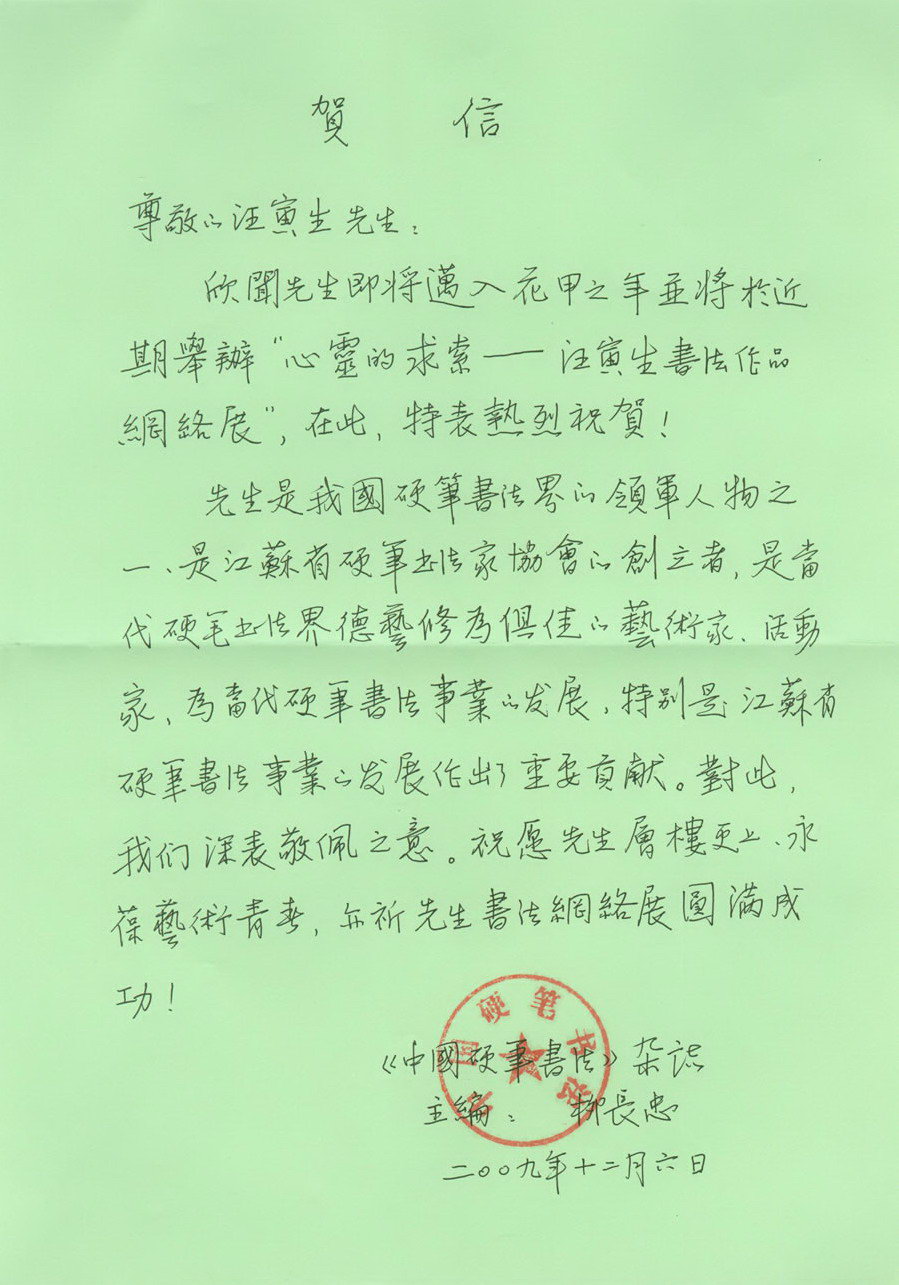 賀 信
尊敬的汪寅生先生：
欣聞先生即将邁入花甲之年並将於近
期舉辦“心靈的求索——汪寅生書法作品
網絡展”，在此，特表熱烈祝賀！
先生是我國硬筆書法界的領軍人物之
一、是江蘇省硬筆书法家協會的創立者，是當
代硬笔书法界德藝修為俱佳的藝術家、活動
家，為當代硬筆書法事業的发展，特别是江蘇省
硬筆書法事業的发展作出了重要貢献。對此，
我们深表敬佩之意。祝愿先生層樓更上、永
葆藝術青春，亦祈先生書法網絡展圓满成
功！
《中國硬筆書法》杂誌
主編： 柳長忠
二〇〇九年十二月六日
中国硬笔书法